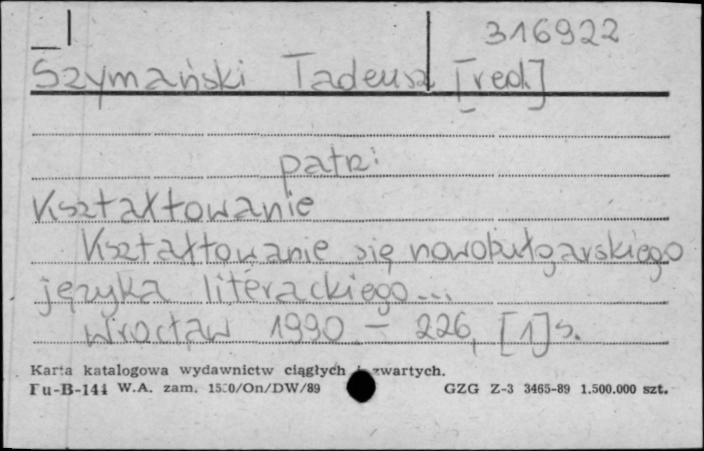 316922
Szymański Tadeusz [red.]
patrz:
Kształtowanie
Kształtowanie się nowobułgarskiego
języka literackiego...
Wrocław 1990 – 226, [1] s.
Karta katalogowa wydawnictw ciągłych i zwartych.
Fu-B-144 W.A. zam. 1520/On/DW/89 GZG Z-3 3465-89 1.500.000 szt.